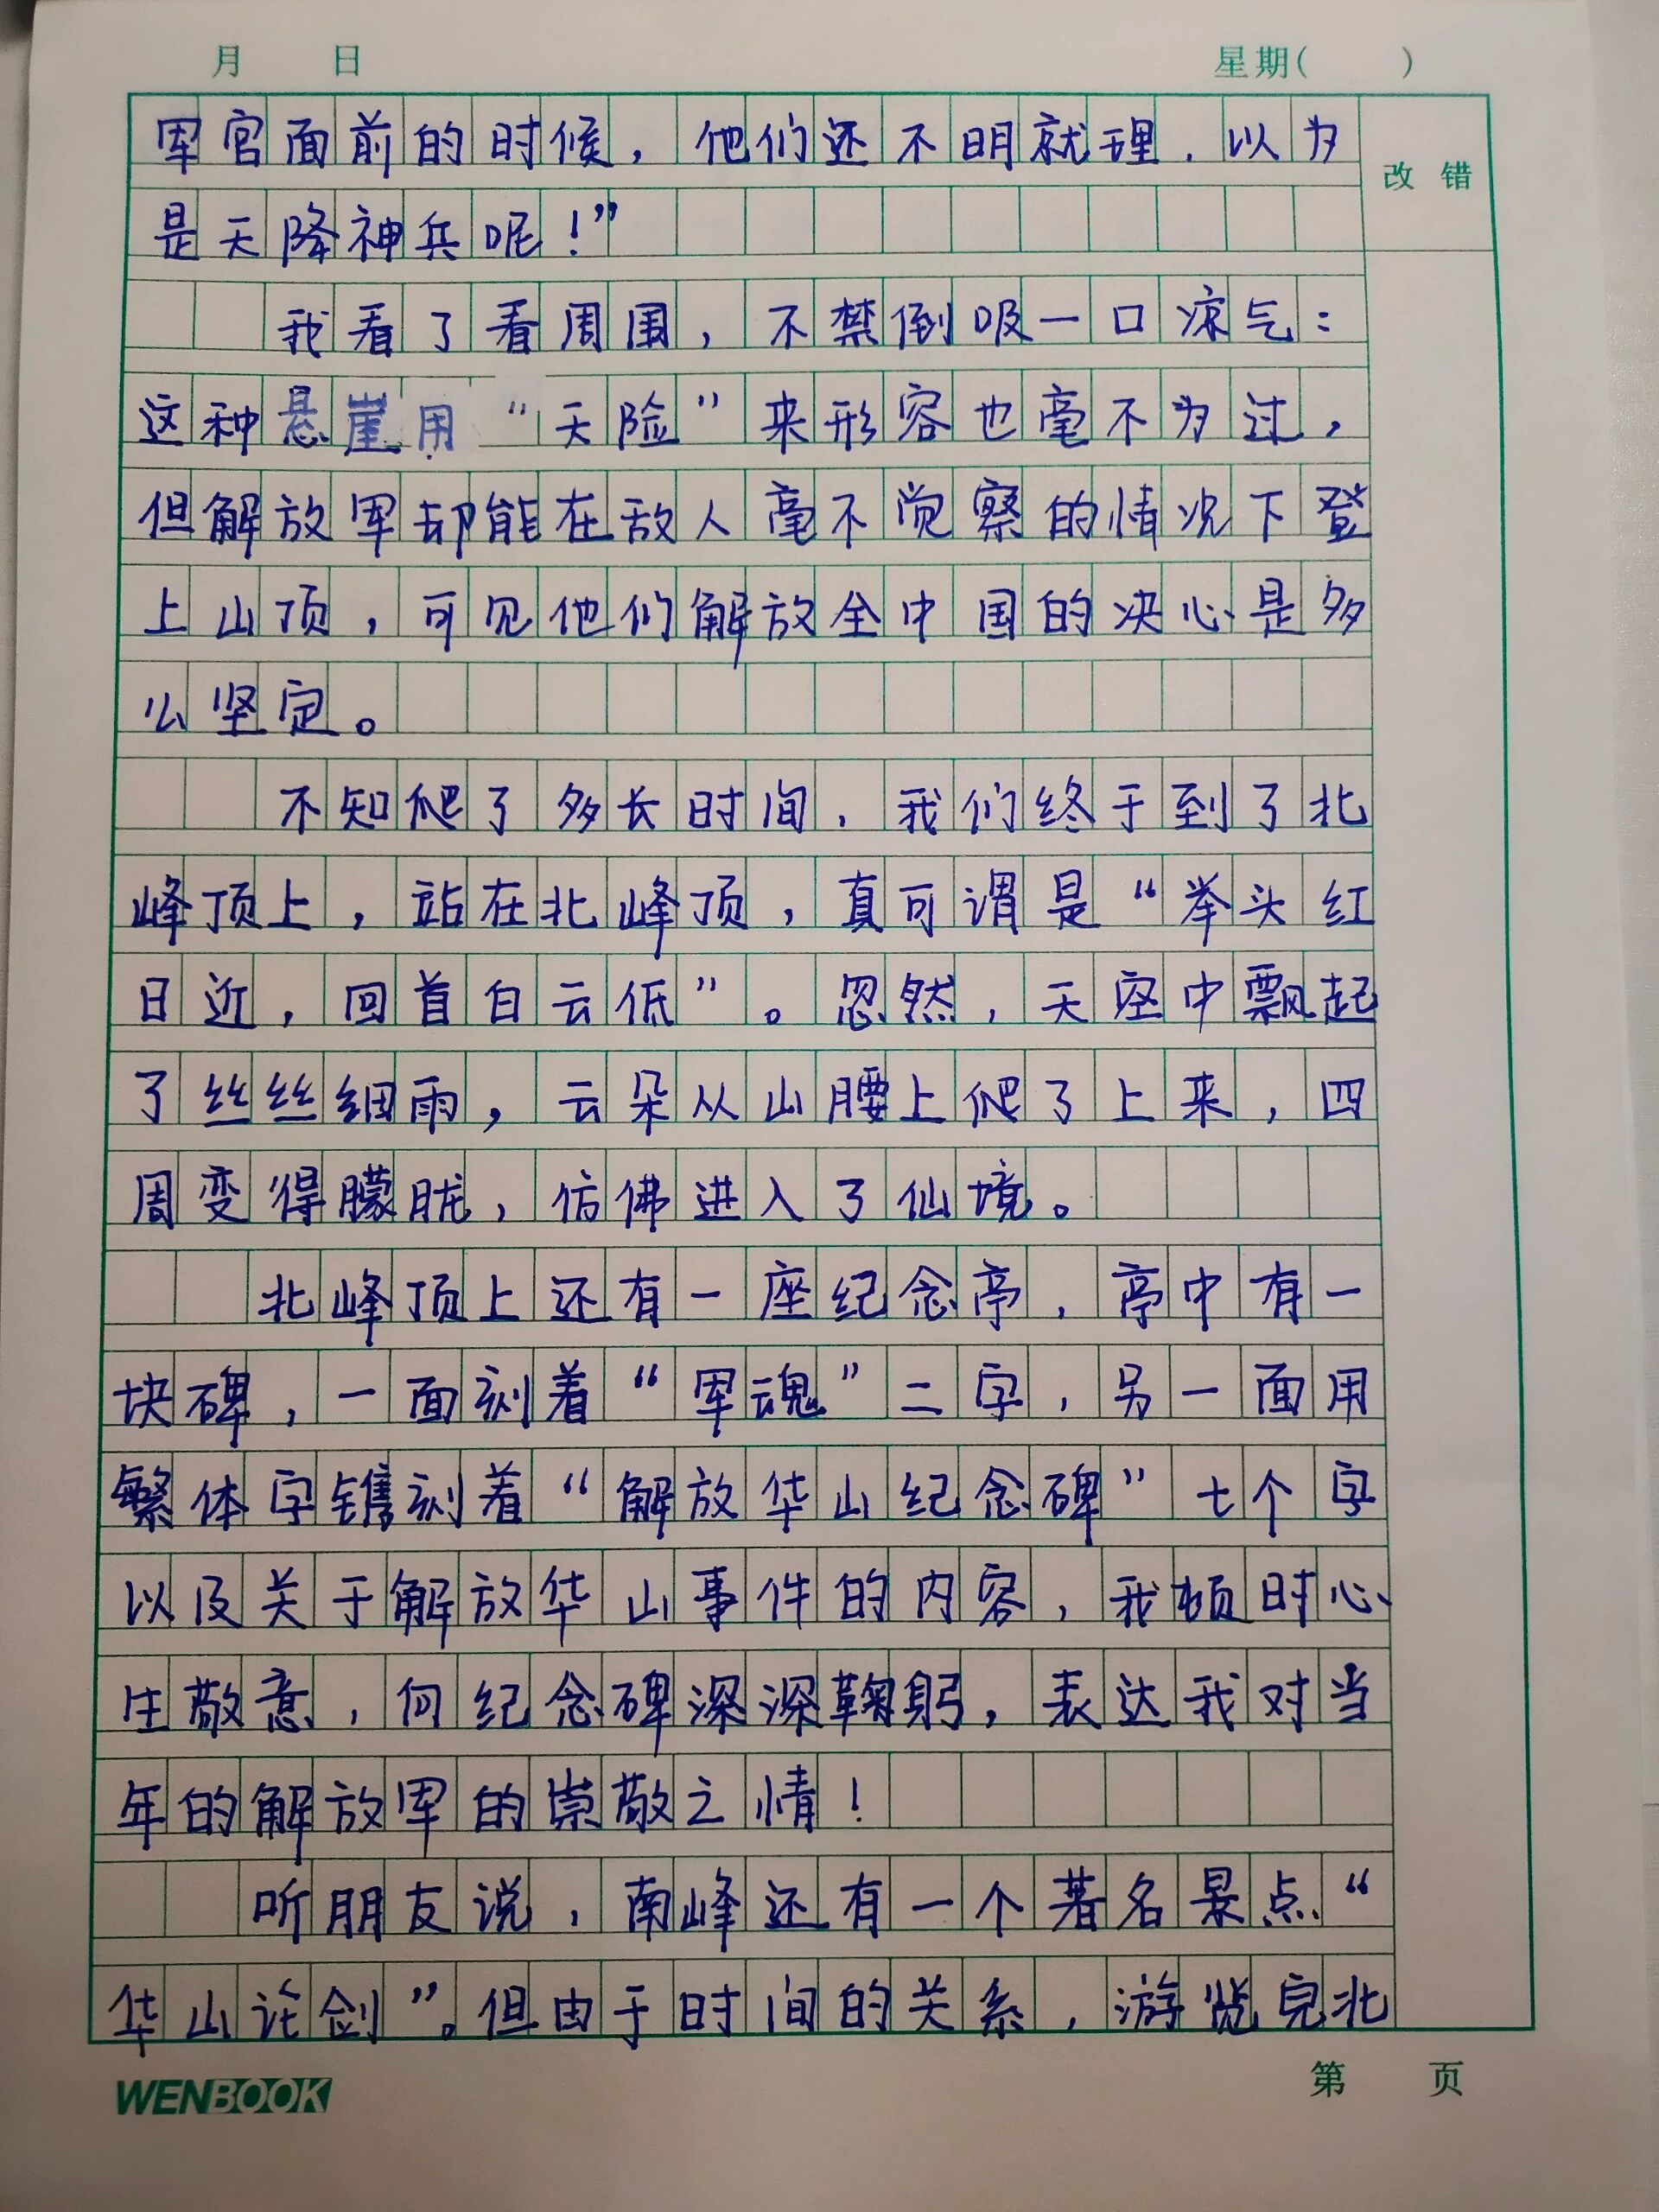 月 日 星期( )
改错
军官面前的时候，他们还不明就理，以为
是天降神兵呢！”
我看了看周围，不禁倒吸一口凉气：
这种悬崖用“天险”来形容也毫不为过，
但解放军却能在敌人毫不觉察的情况下登
上山顶，可见他们解放全中国的决心是多
么坚定。
不知爬了多长时间，我们终于到了北
峰顶上，站在北峰顶，真可谓是“举头红
日近，回首白云低”。忽然，天空中飘起
了丝丝细雨，云朵从山腰上爬了上来，四
周变得朦胧，仿佛进入了仙境。
北峰顶上还有一座纪念亭，亭中有一
块碑，一面刻着“军魂”二字，另一面用
繁体字镌刻着“解放华山纪念碑”七个字
以及关于解放华山事件的内容，我顿时心
生敬意，向纪念碑深深鞠躬，表达我对当
年的解放军的崇敬之情！
听朋友说，南峰还有一个著名景点“
华山论剑”。但由于时间的关系，游览完北
WENBOOK
第 页